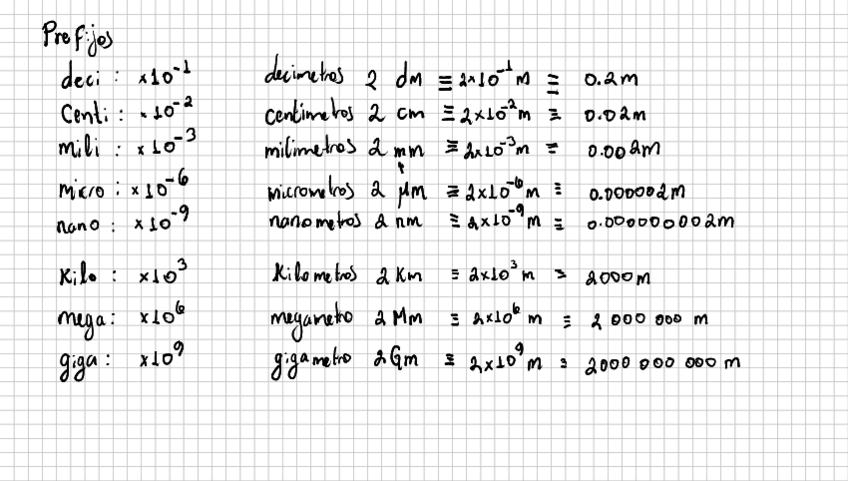 Prefijos
deci : ×10⁻¹ decimetros 2 dm ≡ 2×10⁻¹ m ≡ 0.2m
Centi : ×10⁻² centimetros 2 cm ≡ 2×10⁻² m ≡ 0.02m
mili : ×10⁻³ milimetros 2 mm ≡ 2×10⁻³ m = 0.002m
micro : ×10⁻⁶ micrometros 2 μm ≡ 2×10⁻⁶ m ≡ 0.000002m
nano : ×10⁻⁹ nanometros 2 nm ≡ 2×10⁻⁹ m ≡ 0.000000002m
Kilo : ×10³ Kilometros 2 Km ≡ 2×10³ m ≡ 2000m
mega : ×10⁶ megametro 2 Mm ≡ 2×10⁶ m ≡ 2 000 000 m
giga : ×10⁹ gigametro 2 Gm ≡ 2×10⁹ m ≡ 2000 000 000 m